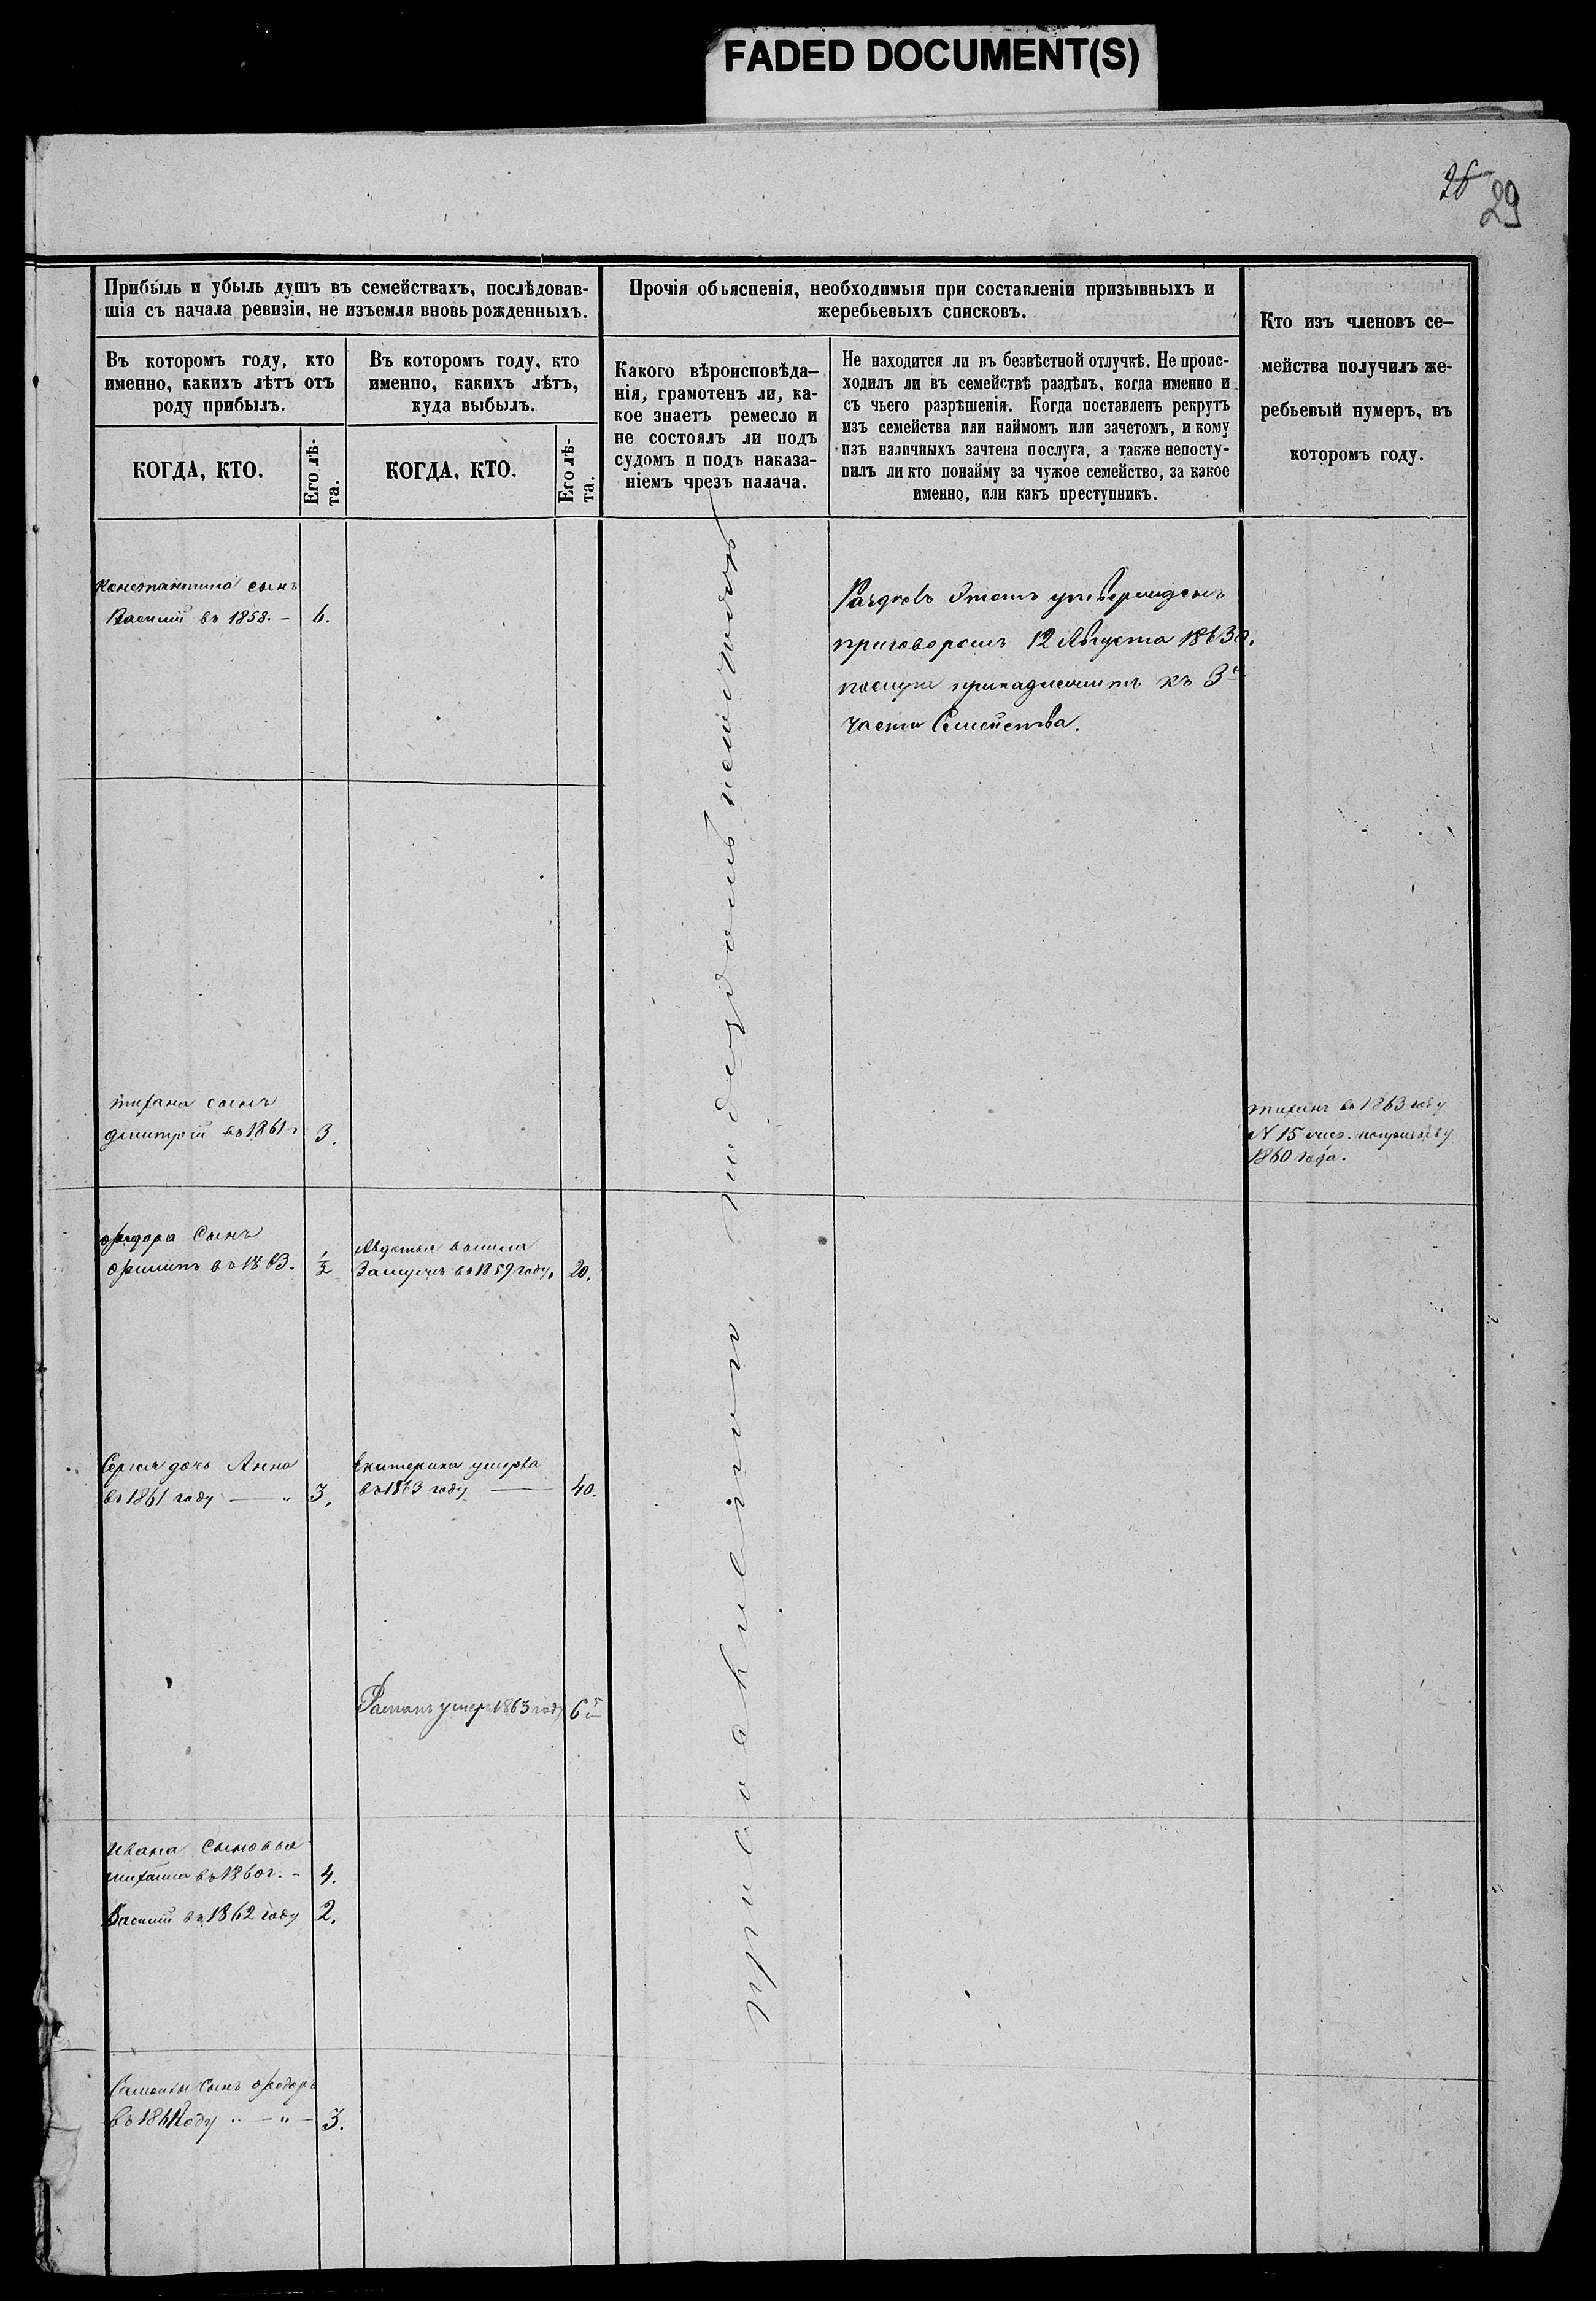 FADED DOCUMENT(S)
29
Прибыль и убыль душъ въ семействахъ, послѣдовав-
шія съ начала ревизіи, не изъемля вновь рожденныхъ.
Въ которомъ году, кто
именно, какихъ лѣтъ отъ
роду прибылъ.
КОГДА, КТО.
Его лѣ-
та.
Въ которомъ году, кто
именно, какихъ лѣтъ,
куда выбылъ.
КОГДА, КТО.
Его лѣ-
та.
Прочія объясненія, необходимыя при составленіи призывныхъ и
жеребьевыхъ списковъ.
Какого вѣроисповѣда-
нія, грамотенъ ли, ка-
кое знаетъ ремесло и
не состоялъ ли подъ
судомъ и подъ наказа-
ніемъ чрезъ палача.
Не находится ли въ безвѣстной отлучкѣ. Не проис-
ходилъ ли въ семействѣ раздѣлъ, когда именно и
съ чьего разрѣшенія. Когда поставленъ рекрутъ
изъ семейства или наймомъ или зачетомъ, и кому
изъ наличныхъ зачтена послуга, а также непосту-
пилъ ли кто понайму за чужое семейство, за какое
именно, или какъ преступникъ.
Кто изъ членовъ се-
мейства получилъ же-
ребьевый нумеръ, въ
которомъ году.
Константина сынъ
Василій въ 1858. – 6.
Раздѣлъ этотъ утвержденъ
приговоромъ 12 Августа 1863 г.
послуга принадлежитъ къ 3й
части Семейства.
православнаго
подъ судомъ
тихана сынъ
дмитрій въ 1861 г 3.
тиханъ въ 1863 году
N 15
1860 года.
ѳедора Сынъ
филипъ въ 1863. ½
Авдотья вышла
Замужъ въ 1859 году, 20.
Сергея дочь Анна
въ 1861 году — „ 3,
Екатерина умерла
въ 1863 году — 40.
Раманъ умеръ 1863 году 6
Ивана Сыновья
михаила въ 1860 г. – 4.
Василій въ 1862 году 2.
Сынъ ѳедоръ
въ 1861 году „ – „ – 3.